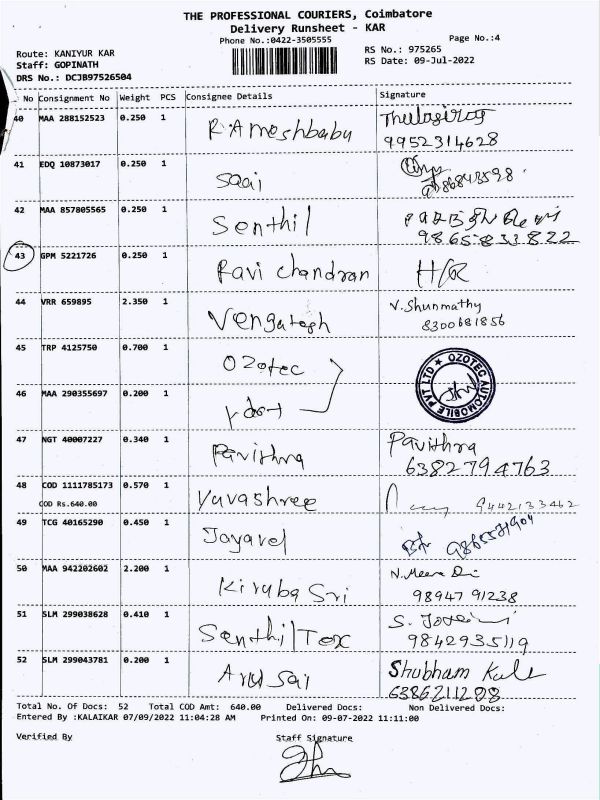 THE PROFESSIONAL COURIERS, Coimbatore
Delivery Runsheet - KAR
Phone No.:0422-3505555
Page No.:4
Route: KANIYUR KAR
RS No.: 975265
Staff: GOPINATH
RS Date: 09-Jul-2022
DRS No.: DCJB97526504
No Consignment No Weight PCS Consignee Details Signature
40 MAA 288152523 0.250 1 R.Ameshbabu Thulasiraj
9952314628
41 EDQ 10873017 0.250 1 Saai
42 MAA 857805565 0.250 1 Senthil
9865833822
43 GPM 5221726 0.250 1 Ravi chandran H/R
44 VRR 659895 2.350 1 Vengatesh V.Shunmathy
8300681856
45 TRP 4125750 0.700 1 Ozotec
OZOTEC AUTOMOBILE PVT LTD
46 MAA 290355697 0.200 1
47 NGT 40007227 0.340 1 Pavithra Pavithra
6382794763
48 COD 1111785173 0.570 1 Yuvashree 9442133462
COD Rs.640.00
49 TCG 40165290 0.450 1 Jayavel
50 MAA 942202602 2.200 1 Kiruba Sri N.Meera
98947 91238
51 SLM 299038628 0.410 1 Senthil Tex S.
9842935119
52 SLM 299043781 0.200 1 Arul Sai Shubham
6386211288
Total No. Of Docs: 52 Total COD Amt: 640.00 Delivered Docs: Non Delivered Docs:
Entered By :KALAIKAR 07/09/2022 11:04:28 AM Printed On: 09-07-2022 11:11:00
Verified By Staff Signature